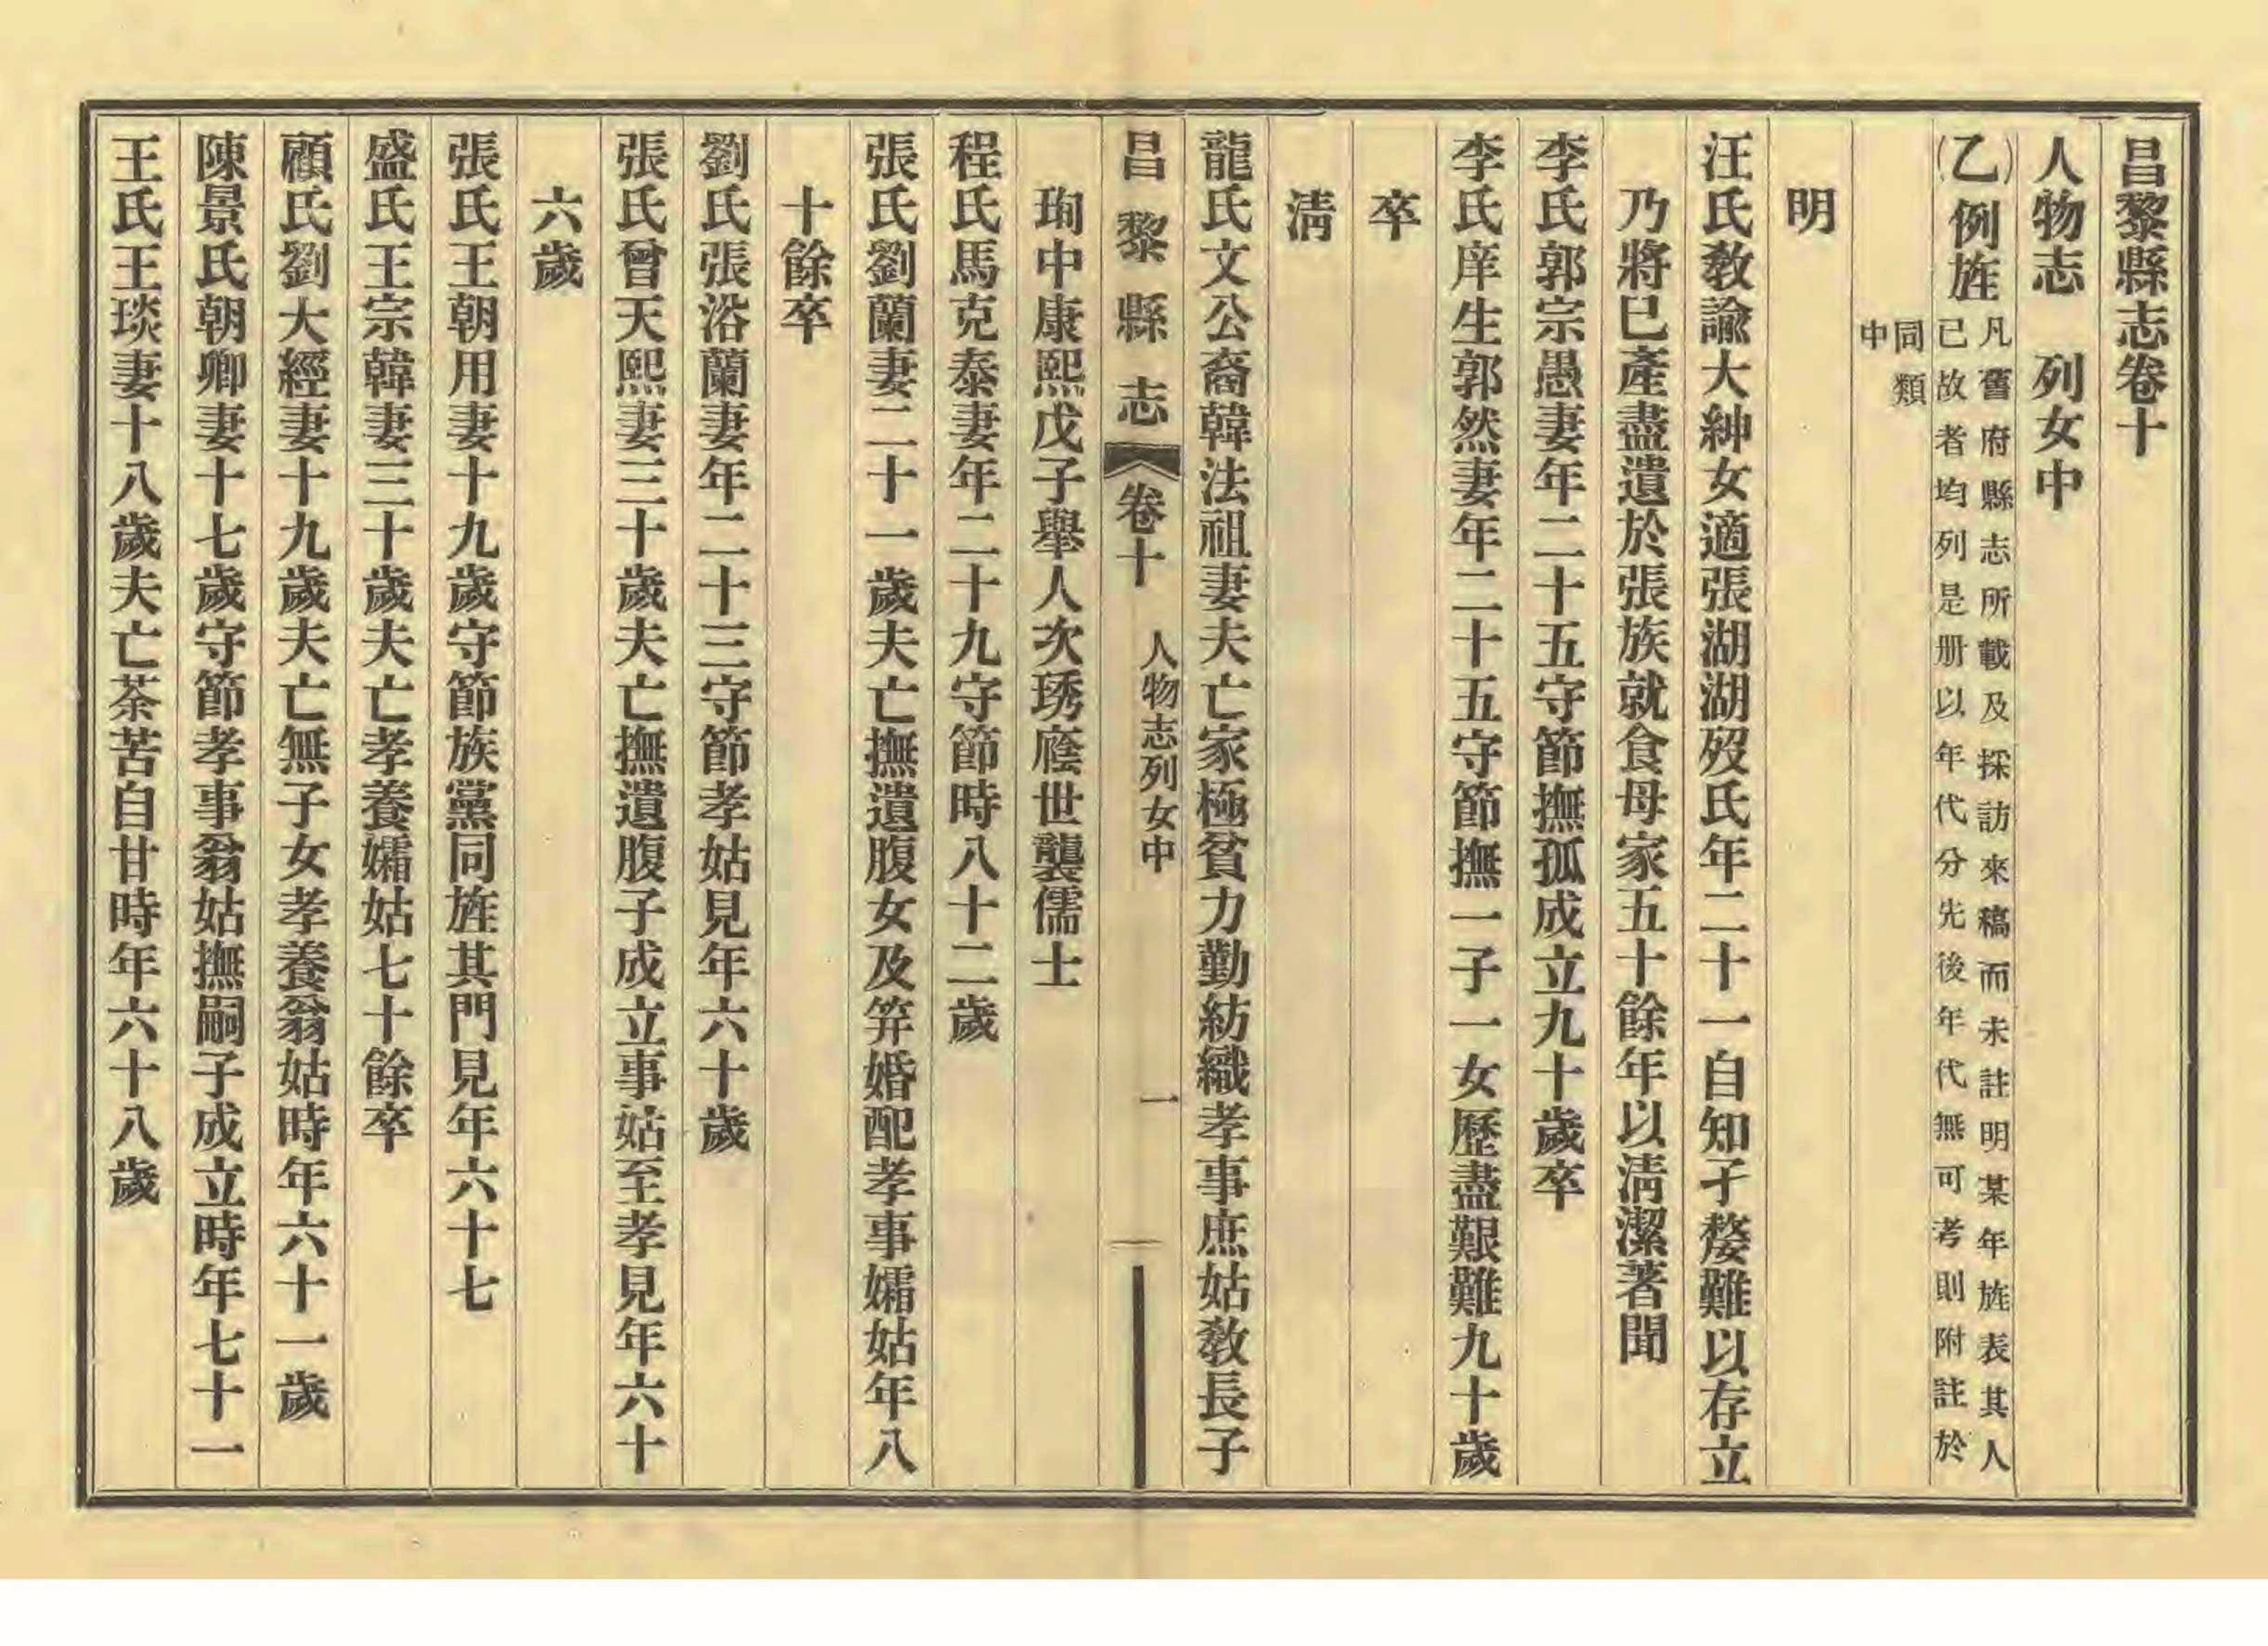 昌黎縣志卷十
人物志　列女中
(乙)例旌
凡舊府縣志所載及採訪來稿而未註明某年旌表其人
已故者均列是册以年代分先後年代無可考則附註於
同類
中
明
汪氏敎諭大紳女適張湖湖歿氏年二十一自知孑嫠難以存立
乃將巳產盡遺於張族就食母家五十餘年以淸潔著聞
李氏郭宗愚妻年二十五守節撫孤成立九十歲卒
李氏庠生郭然妻年二十五守節撫一子一女歷盡艱難九十歲
卒
淸
龍氏文公裔韓法祖妻夫亡家極貧力勤紡織孝事庶姑敎長子
昌黎縣志　卷十　人物志列女中　一
珣中康熙戊子舉人次琇廕世襲儒士
程氏馬克泰妻年二十九守節時八十二歲
張氏劉蘭妻二十一歲夫亡撫遺腹女及笄婚配孝事孀姑年八
十餘卒
劉氏張浴蘭妻年二十三守節孝姑見年六十歲
張氏曾天熙妻三十歲夫亡撫遺腹子成立事姑至孝見年六十
六歲
張氏王朝用妻十九歲守節族黨同旌其門見年六十七
盛氏王宗韓妻三十歲夫亡孝養孀姑七十餘卒
顧氏劉大經妻十九歲夫亡無子女孝養翁姑時年六十一歲
陳景氏朝卿妻十七歲守節孝事翁姑撫嗣子成立時年七十一
王氏王琰妻十八歲夫亡茶苦自甘時年六十八歲